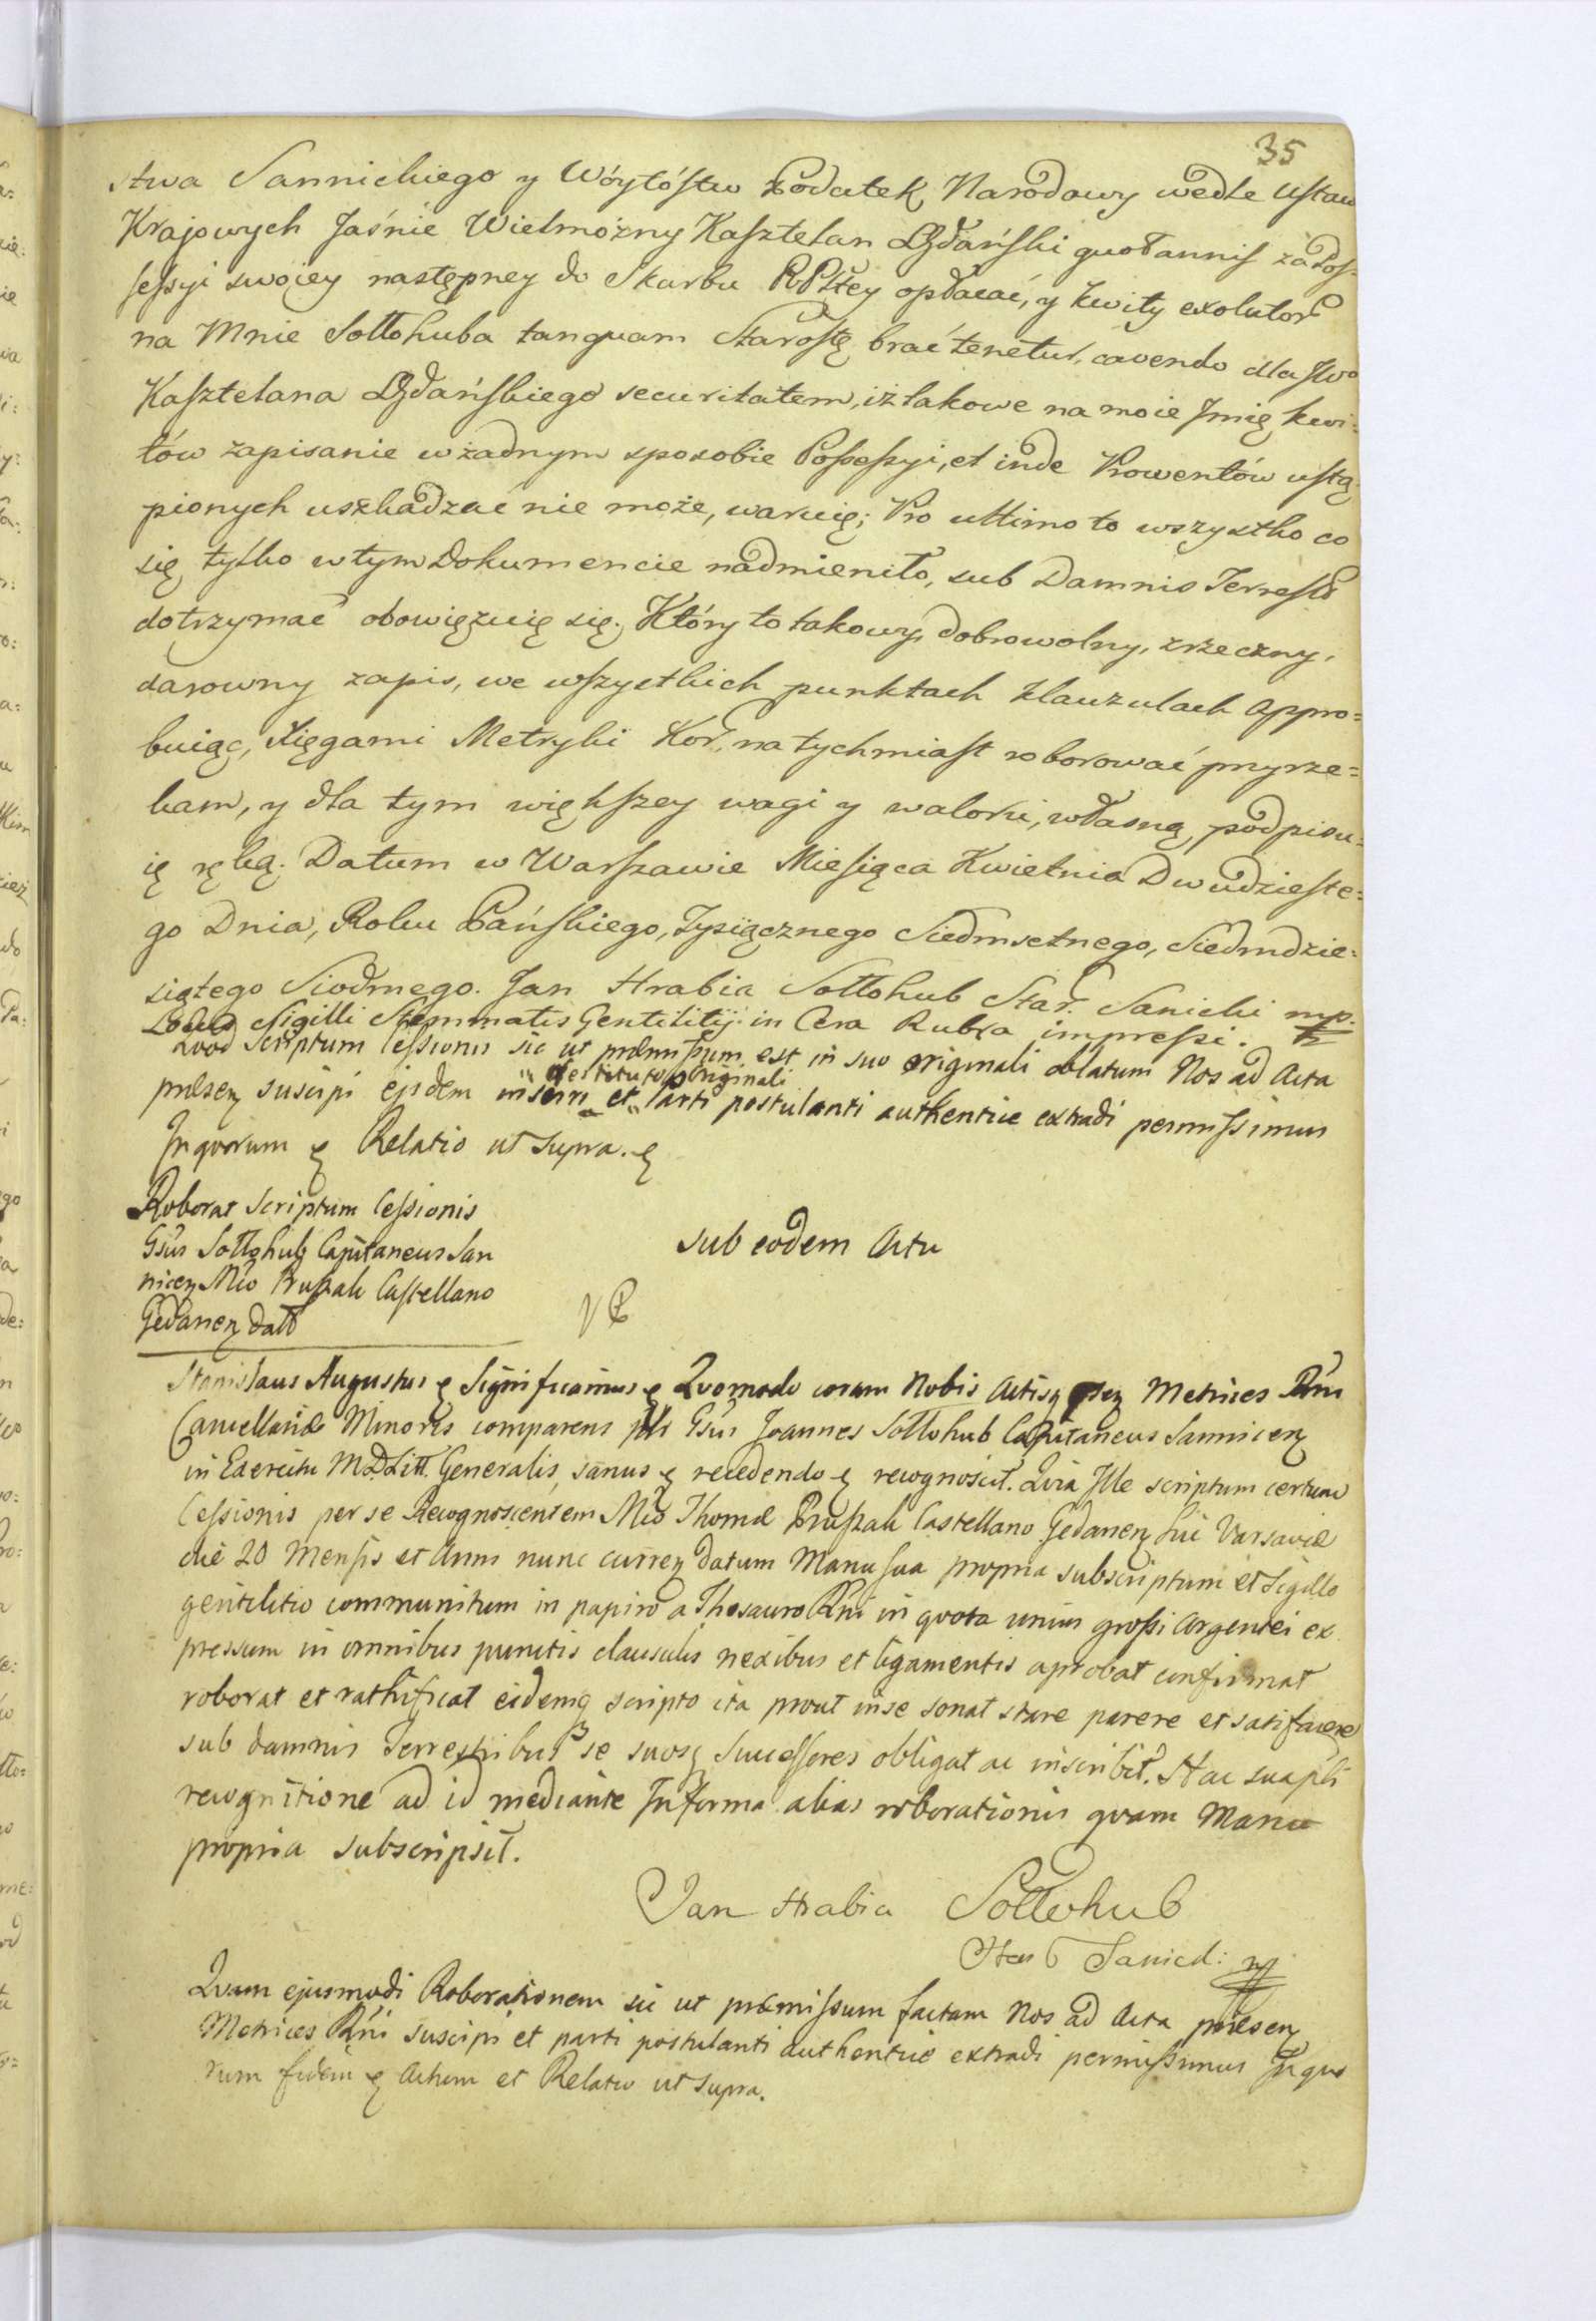 35
stwa Sannickiego y Wóytóstw Podatek Narodowy wedle Ustaw
Krajowych Jaśnie Wielmożny Kasztelan Gdański quotannis za Pos=
sessyi swojey następney do Skarbu RPltey opłacać, y kwity exolutor
na Mnie Sołłohuba tanquam Starostę brać tenetur, cavendo dla JWo
Kasztelana Gdańskiego securitatem, iż takowe na moie Jmię kwi=
tów zapisanie w żadnym sposobie Possessyi, et inde Prowentów ustą=
pionych uszkadzać nie może, waruię; Pro ultimo to wszystko co
się tylko w tym Dokumencie nadmieniło, sub Damnis Terrestr
dotrzymać obowięzuię się. Który to takowy dobrowolny, zrzeczny,
darowny zapis, we wszystkich punktach klauzulach appro=
buiąc, Xięgami Metryki Kor. natychmiast roborować przyrze=
kam, y dla tym większey wagi y waloru, własną podpisu=
ię ręką. Datum w Warszawie Miesiąca Kwietnia Dwudzieste=
go Dnia, Roku Pańskiego, Tysiącznego Siedmsetnego, Siedmdzie=
siątego Siodmego. Jan Hrabia Sołłohub Star. Sanicki mp.
Locus Sigilli Stemmatis Gentilitij in Cera Rubra impressi.
Quod Scriptum Cessionis sic ut præmissum est in suo originali oblatum Nos ad Acta
præsen suscipi ejsdem inseri et "restituto Originali" Parti postulanti authentice extradi permissimus
In quorum Relatio ut supra.
Roborat Scriptum Cessionis
Gsus Sołłohub Capitaneus San
nicen Mco Pruszak Castellano
Gedanen datt
Sub eodem Actu
Stanislaus Augustus Significamus Quomodo coram Nobis Actisq psen Metrices Rni
Cancellariæ Minoris comparens psls Gsus Joannes Sołłohub Capitaneus Sannicen
in Exercitu M.D.Litt. Generalis, sanus recedendo recognoscit. Quia Ille scriptum certum
Cessionis per se Recognoscentem Mco Thomæ Pruszak Castellano Gedanen hic Varsaviæ
die 20 Mensis et Anni nunc curren datum Manu sua propria subscriptum et Sigillo
gentilitio communitum in papiro a Thesauro Rni in quota unius grossi Argentei ex
pressum in omnibus punctis clausulis nexibus et ligamentis aprobat confirmat
roborat et rathificat eidemq scripto ita prout in se sonat stare parere et satisfacere
sub damnis Terrestribus se suosq Successores obligat ac inscribit. Hac sua psli
recognitione ad id mediante In forma alias roborationis quam Manu
propria subscripsit.
Jan Hrabia Sołłohub
Star Sanicki: mp
Quam ejusmodi Roborationem sic ut præmissum factam Nos ad Acta præsen
Metrices Rni suscipi et parti postulanti authentice extradi permissimus In quo
rum fidem Actum et Relatio ut supra.